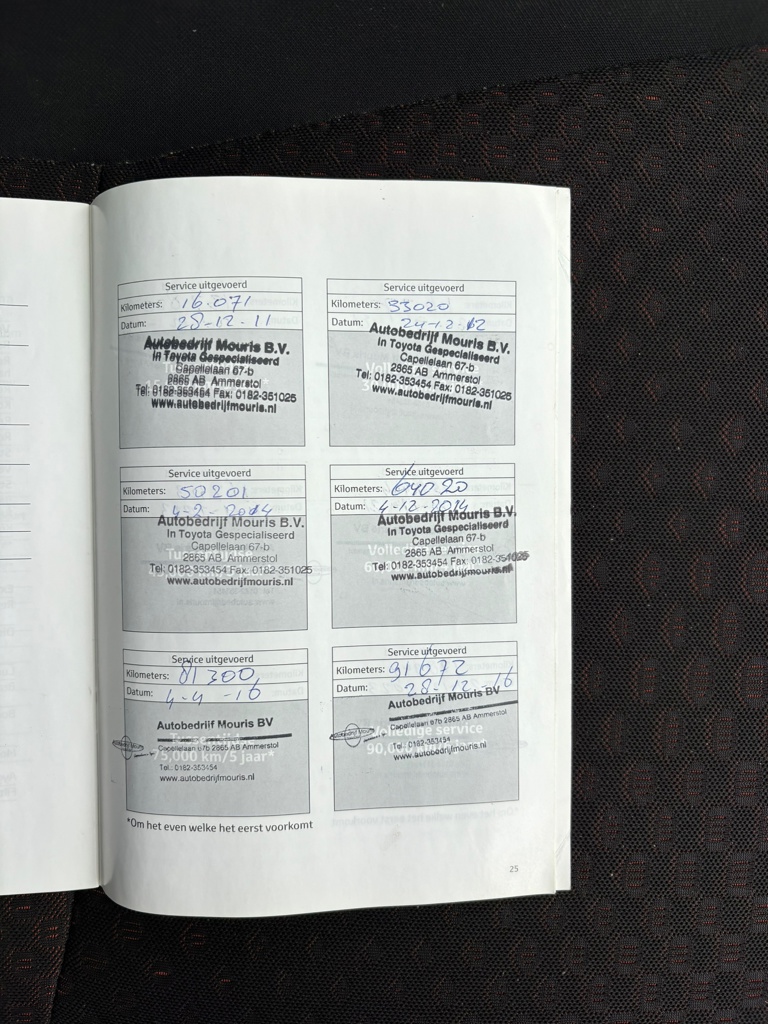 Service uitgevoerd
Kilometers: 16.071
Datum: 28-12-11
Autobedrijf Mouris B.V.
In Toyota Gespecialiseerd
Capellelaan 67-b
2865 AB Ammerstol
Tel: 0182-353454 Fax: 0182-351025
www.autobedrijfmouris.nl
Service uitgevoerd
Kilometers: 33020
Datum: 24-12-12
Autobedrijf Mouris B.V.
In Toyota Gespecialiseerd
Capellelaan 67-b
2865 AB Ammerstol
Tel: 0182-353454 Fax: 0182-351025
www.autobedrijfmouris.nl
Service uitgevoerd
Kilometers: 50201
Datum: 4-2-2014
Autobedrijf Mouris B.V.
In Toyota Gespecialiseerd
Capellelaan 67-b
2865 AB Ammerstol
Tel: 0182-353454 Fax: 0182-351025
www.autobedrijfmouris.nl
Service uitgevoerd
Kilometers: 64020
Datum: 4-12-2014
Autobedrijf Mouris B.V.
In Toyota Gespecialiseerd
Capellelaan 67-b
2865 AB Ammerstol
Tel: 0182-353454 Fax: 0182-351025
www.autobedrijfmouris.nl
Service uitgevoerd
Kilometers: 81300
Datum: 4-4-16
Autobedrijf Mouris BV
Capellelaan 67b 2865 AB Ammerstol
75,000 km/5 jaar*
Tel.: 0182-353454
www.autobedrijfmouris.nl
Service uitgevoerd
Kilometers: 91672
Datum: 28-12-16
Autobedrijf Mouris BV
Capellelaan 67b 2865 AB Ammerstol
Volledige service
90,000
Tel.: 0182-353454
www.autobedrijfmouris.nl
*Om het even welke het eerst voorkomt
25